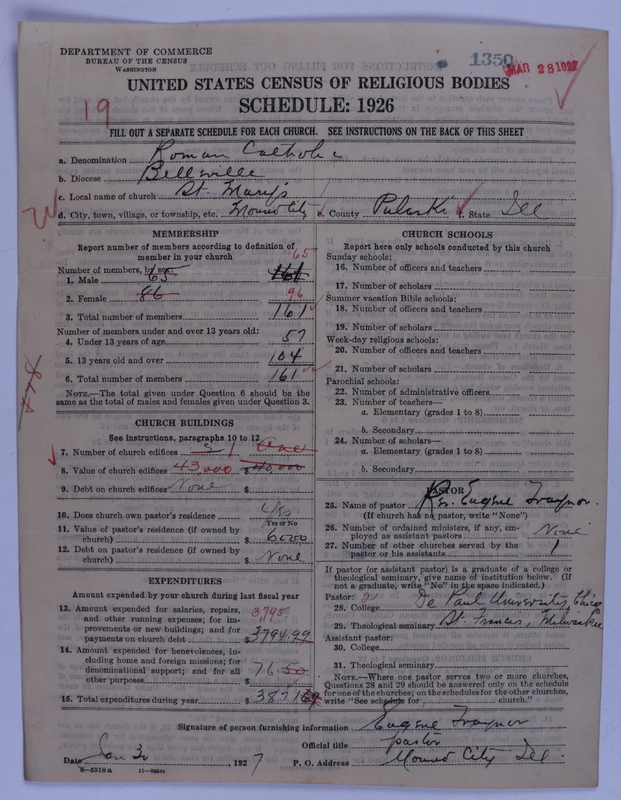 DEPARTMENT OF COMMERCE
BUREAU OF THE CENSUS
WASHINGTON
1350
MAR 28 1927
UNITED STATES CENSUS OF RELIGIOUS BODIES
SCHEDULE: 1926
19
FILL OUT A SEPARATE SCHEDULE FOR EACH CHURCH. SEE INSTRUCTIONS ON THE BACK OF THIS SHEET
a. Denomination Roman Catholic
b. Diocese Bellville
c. Local name of church St. Mary's
d. City, town, village, or township, etc. Mound City e. County Pulaski f. State Ill
MEMBERSHIP
Report number of members according to definition of
member in your church
Number of members, by sex:
1. Male 65 161 65
2. Female 86 96
3. Total number of members 161
Number of members under and over 13 years old:
4. Under 13 years of age 57
5. 13 years old and over 104
6. Total number of members 161
NOTE.—The total given under Question 6 should be the
same as the total of males and females given under Question 3.
CHURCH BUILDINGS
See instructions, paragraphs 10 to 12
7. Number of church edifices 1 One
8. Value of church edifices 43,000 $40,000
9. Debt on church edifices None $
10. Does church own pastor's residence Yes
Yes or No
11. Value of pastor's residence (if owned by
church) $ 6000
12. Debt on pastor's residence (if owned by
church) $ None
EXPENDITURES
Amount expended by your church during last fiscal year
13. Amount expended for salaries, repairs,
and other running expenses; for im-
provements or new buildings; and for
payments on church debt $ 3794.99
3795
14. Amount expended for benevolences, in-
cluding home and foreign missions; for
denominational support; and for all
other purposes $ 76.50
15. Total expenditures during year $ 3871
CHURCH SCHOOLS
Report here only schools conducted by this church
Sunday schools:
16. Number of officers and teachers
17. Number of scholars
Summer vacation Bible schools:
18. Number of officers and teachers
19. Number of scholars
Week-day religious schools:
20. Number of officers and teachers
21. Number of scholars
Parochial schools:
22. Number of administrative officers
23. Number of teachers—
a. Elementary (grades 1 to 8)
b. Secondary
24. Number of scholars—
a. Elementary (grades 1 to 8)
b. Secondary
PASTOR
25. Name of pastor Rev. Eugene Traynor
(If church has no pastor, write "None")
26. Number of ordained ministers, if any, em-
ployed as assistant pastors None
27. Number of other churches served by the
pastor or his assistants 1
If pastor (or assistant pastor) is a graduate of a college or
theological seminary, give name of institution below. (If
not a graduate, write "No" in the space indicated.)
Pastor: 2
28. College De Paul University, Chicago
29. Theological seminary St. Francis, Milwaukee
Assistant pastor:
30. College
31. Theological seminary
NOTE.—Where one pastor serves two or more churches,
Questions 28 and 29 should be answered only on the schedule
for one of the churches; on the schedules for the other churches,
write "See schedule for church."
Signature of person furnishing information Eugene Traynor
Official title pastor
Date Jan 30, 1927 P. O. Address Mound City Ill.
8-5518a 11-9664a